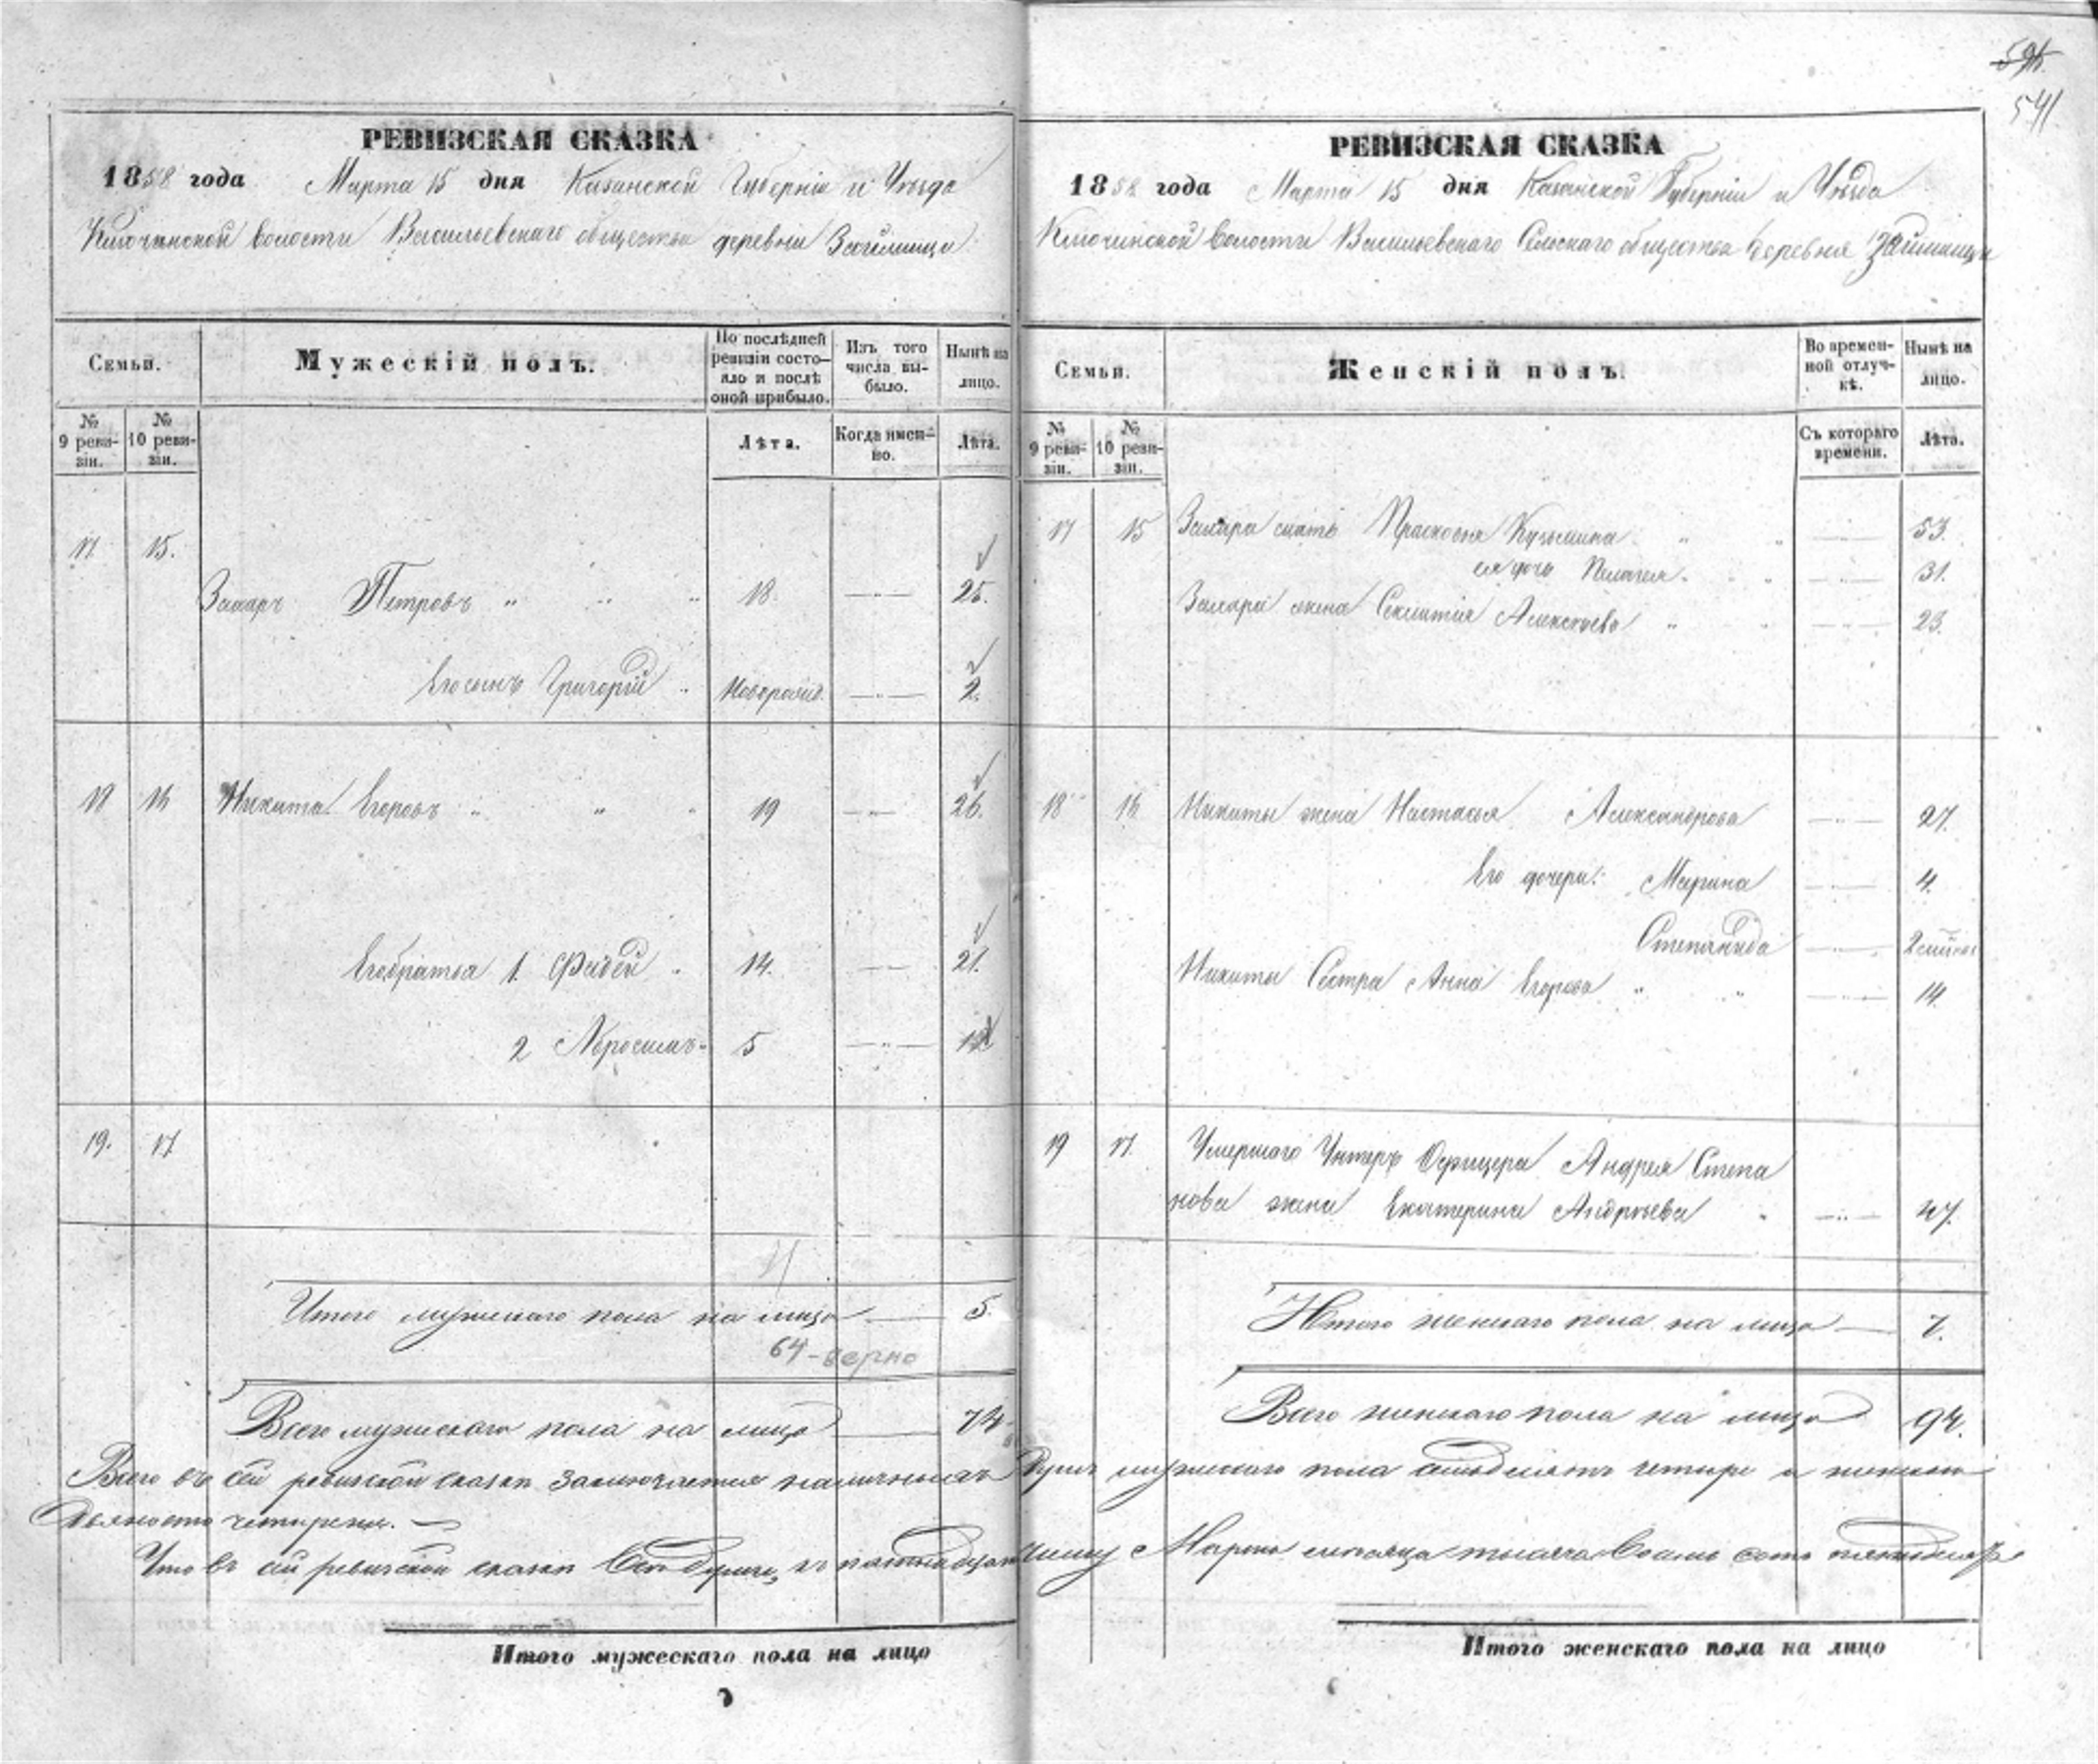 59
541
РЕВИЗСКАЯ СКАЗКА
1858 года Марта 15 дня Казанской Губерніи и Уѣзда
Ключинской волости Васильевскаго общества деревни Займища
Семьи.
Мужескій полъ.
По послѣдней ревизіи состояло и послѣ оной прибыло.
Изъ того числа выбыло.
Нынѣ на лицо.
№ 9 ревизіи.
№ 10 ревизіи.
Лѣта.
Когда именно.
Лѣта.
17 15.
Захаръ Петровъ " " " 18. —"— 25.
Его сынъ Григорій " новорожд. —"— 2.
18 16 Никита Егоровъ " " " 19 —"— 26.
Его братья 1. Фадей " 14. —"— 21.
2 Абросимъ 5 —"— 12
19. 17
Итого мужескаго пола на лицо — 5.
64 - верно
Всего мужескаго пола на лицо — 74
РЕВИЗСКАЯ СКАЗКА
1858 года Марта 15 дня Казанской Губерніи и Уѣзда
Ключинской волости Васильевскаго Сельскаго общества деревня Займища
Семьи.
Женскій полъ.
Во временной отлучкѣ.
Нынѣ на лицо.
№ 9 ревизіи.
№ 10 ревизіи.
Съ котораго времени.
Лѣта.
17 15 Захара мать Прасковья Кузьмина " " —"— 53.
ея дочь Пелагея " " —"— 31.
Захара жена Алексѣева " " —"— 23.
18 16 Никиты жена Настасья Александрова —"— 27.
Его дочери: Марина —"— 4.
Степанида —"— 2
Никиты Сестра Анна Егорова " " —"— 14.
19 17. Умершаго Унтеръ Офицера Андрея Степа
нова жена Екатерина Андреева " —"— 47.
Итого женскаго пола на лицо — 7.
Всего женскаго пола на лицо 94.
Всего въ сей ревизской сказкѣ заключается наличныхъ Душъ мужескаго пола семьдесятъ четыре и женскаго
девяносто четыре
Что въ сей ревизской сказкѣ Всѣ души, къ пятнадцатому числу Марта мѣсяца тысяча восемь сотъ пятьдесятъ
Итого мужескаго пола на лицо
Итого женскаго пола на лицо